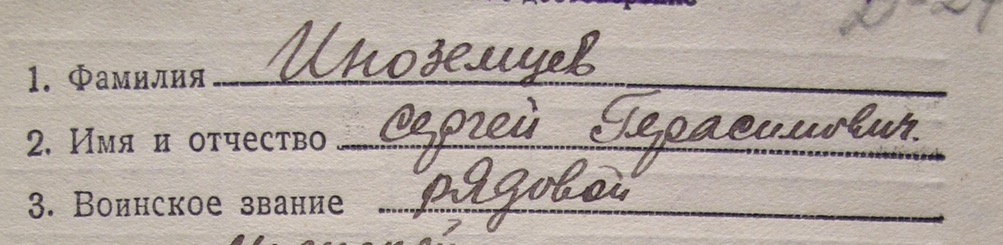 1. Фамилия Иноземцев
2. Имя и отчество Сергей Герасимович.
3. Воинское звание рядовой